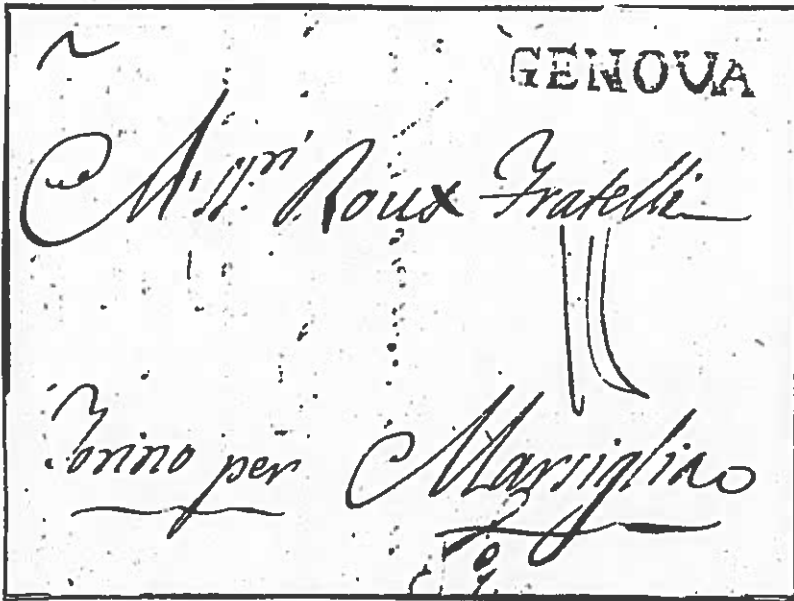 GENOVA
Roux Fratelli
Torino per Marsiglia